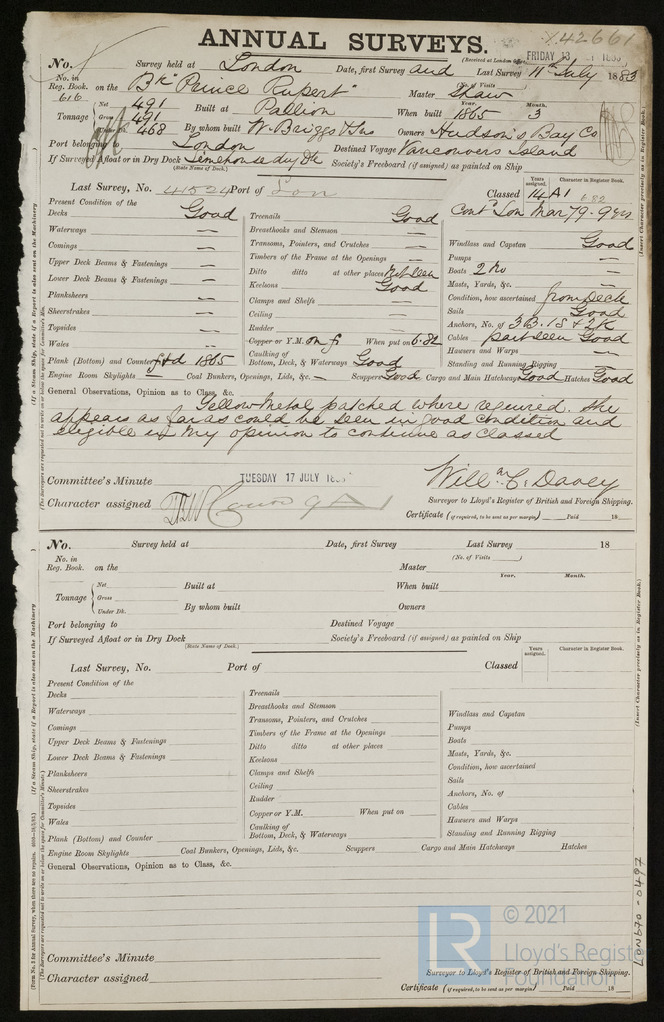 ANNUAL SURVEYS. X42661
No. Survey held at London Date, first Survey and Last Survey 11th July 1883
(Received at London Office FRIDAY 13
No. in Reg. Book. 616 on the Bk "Prince Rupert" (No. of Visits) Master Shaw
Tonnage Net 491 Gross 491 468 Built at Pallion When built Year. 1865 Month. 3
By whom built W. Briggs & Sns Owners Hudson's Bay Co
Port belonging to London Destined Voyage Vancouvers Island
If Surveyed Afloat or in Dry Dock Limehouse dry Dk Society's Freeboard (if assigned) as painted on Ship
(State Name of Dock.)
Last Survey, No. 41524 Port of Lon Classed Years assigned. 14 Character in Register Book. A1 6.82
Present Condition of the Cont Lon Mar 79. 9 yrs
Decks Good Treenails Good
Waterways — Breasthooks and Stemson — Windlass and Capstan Good
Comings — Transoms, Pointers, and Crutches — Pumps —
Upper Deck Beams & Fastenings — Timbers of the Frame at the Openings — Boats 2 No
Lower Deck Beams & Fastenings — Ditto ditto at other places Not seen Masts, Yards, &c. —
Planksheers — Keelsons Good Condition, how ascertained from Deck
Sheerstrakes — Clamps and Shelfs — Sails Good
Topsides — Ceiling — Anchors, No. of 3 B. 1 S & 2 K
Wales — Rudder — Cables part seen Good
Copper or Y.M. on f When put on 6.82 Hawsers and Warps —
Plank (Bottom) and Counter f&d 1865 Caulking of Bottom, Deck, & Waterways Good Standing and Running Rigging —
Engine Room Skylights — Coal Bunkers, Openings, Lids, &c. — Scuppers Good Cargo and Main Hatchways Good Hatches Good
General Observations, Opinion as to Class, &c.
Yellow Metal patched where required. She
appears as far as could be seen in good condition and
eligible in my opinion to continue as classed
Committee's Minute TUESDAY 17 JULY 188 Willm C. Davey
Character assigned Surveyor to Lloyd's Register of British and Foreign Shipping.
Certificate (if required, to be sent as per margin) Paid 18
No. Survey held at Date, first Survey Last Survey 18
No. in Reg. Book. on the (No. of Visits) Master
Tonnage Net Gross Under Dk. Built at When built Year. Month.
By whom built Owners
Port belonging to Destined Voyage
If Surveyed Afloat or in Dry Dock Society's Freeboard (if assigned) as painted on Ship
(State Name of Dock.)
Last Survey, No. Port of Classed Years assigned. Character in Register Book.
Present Condition of the
Decks Treenails
Waterways Breasthooks and Stemson Windlass and Capstan
Comings Transoms, Pointers, and Crutches Pumps
Upper Deck Beams & Fastenings Timbers of the Frame at the Openings Boats
Lower Deck Beams & Fastenings Ditto ditto at other places Masts, Yards, &c.
Planksheers Keelsons Condition, how ascertained
Sheerstrakes Clamps and Shelfs Sails
Topsides Ceiling Anchors, No. of
Wales Rudder Cables
Copper or Y.M. When put on Hawsers and Warps
Plank (Bottom) and Counter Caulking of Bottom, Deck, & Waterways Standing and Running Rigging
Engine Room Skylights Coal Bunkers, Openings, Lids, &c. Scuppers Cargo and Main Hatchways Hatches
General Observations, Opinion as to Class, &c.
Committee's Minute
Character assigned Surveyor to Lloyd's Register of British and Foreign Shipping.
Certificate (if required, to be sent as per margin) Paid 18
LON670-0497
LR © 2021
Lloyd's Register
Foundation